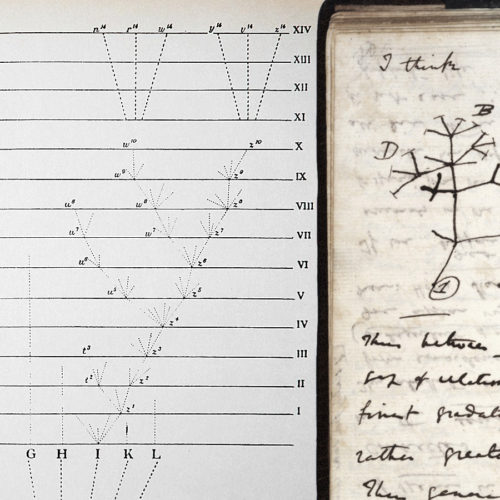 n¹⁴ r¹⁴ w¹⁴ y¹⁴ v¹⁴ z¹⁴ XIV
XIII
XII
XI
w¹⁰ z¹⁰ X
w⁹ z⁹ IX
u⁸ w⁸ z⁸ VIII
u⁷ w⁷ z⁷ VII
u⁶ z⁶ VI
u⁵ z⁵ V
z⁴ IV
t³ z³ III
t² z² II
z¹ I
G H I K L
I think
B
D
1
Thus between
gap of relation
finest gradat
rather great
Thus genera